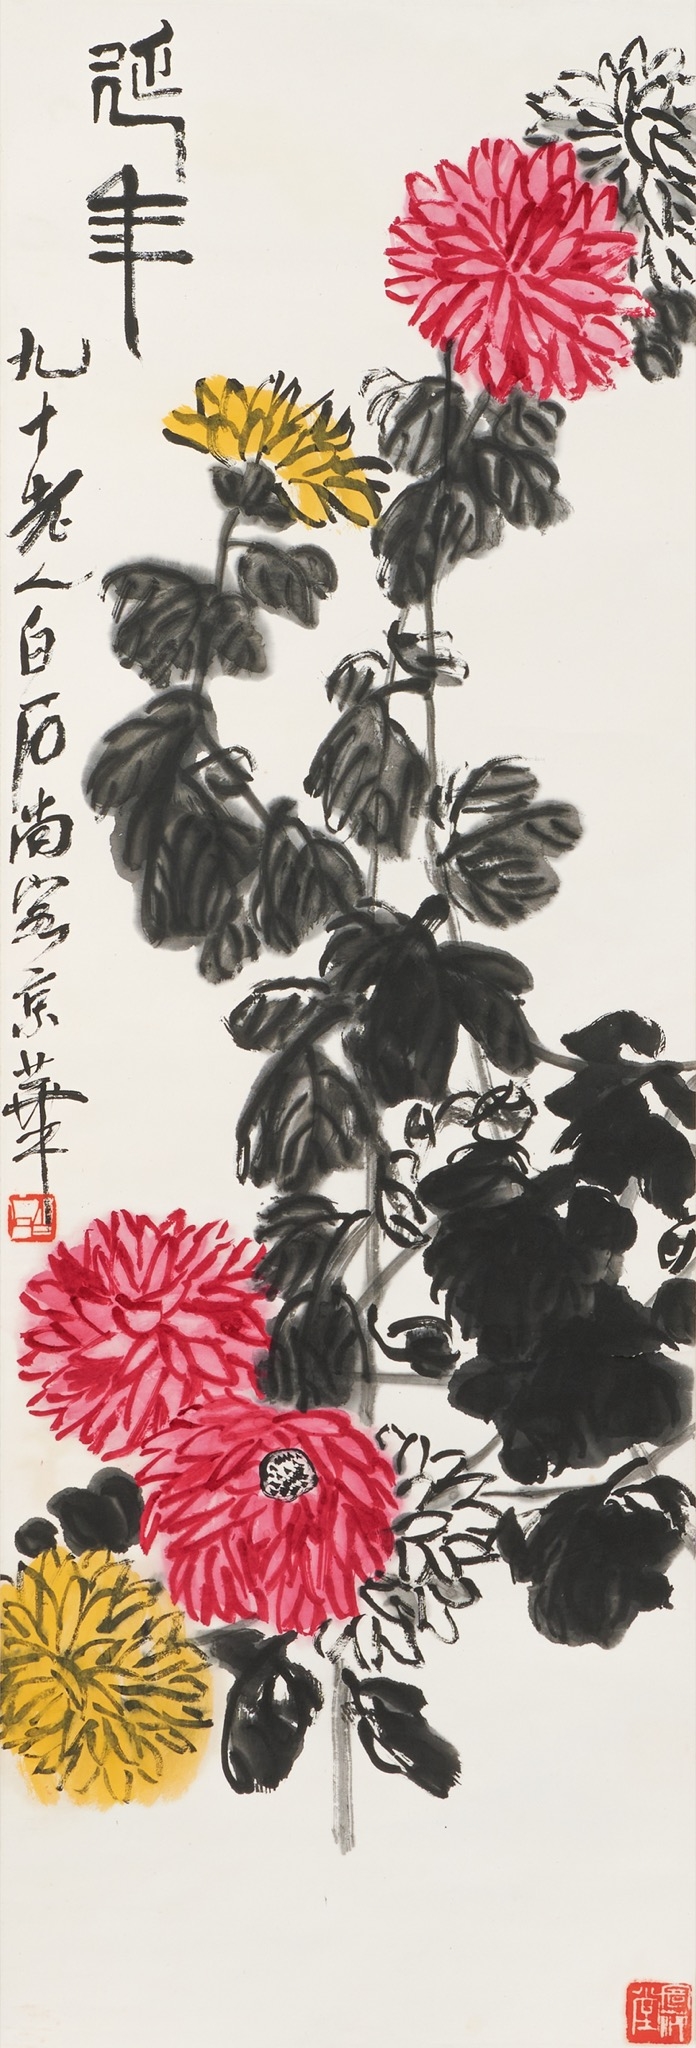 延年
九十老人白石尚客京華